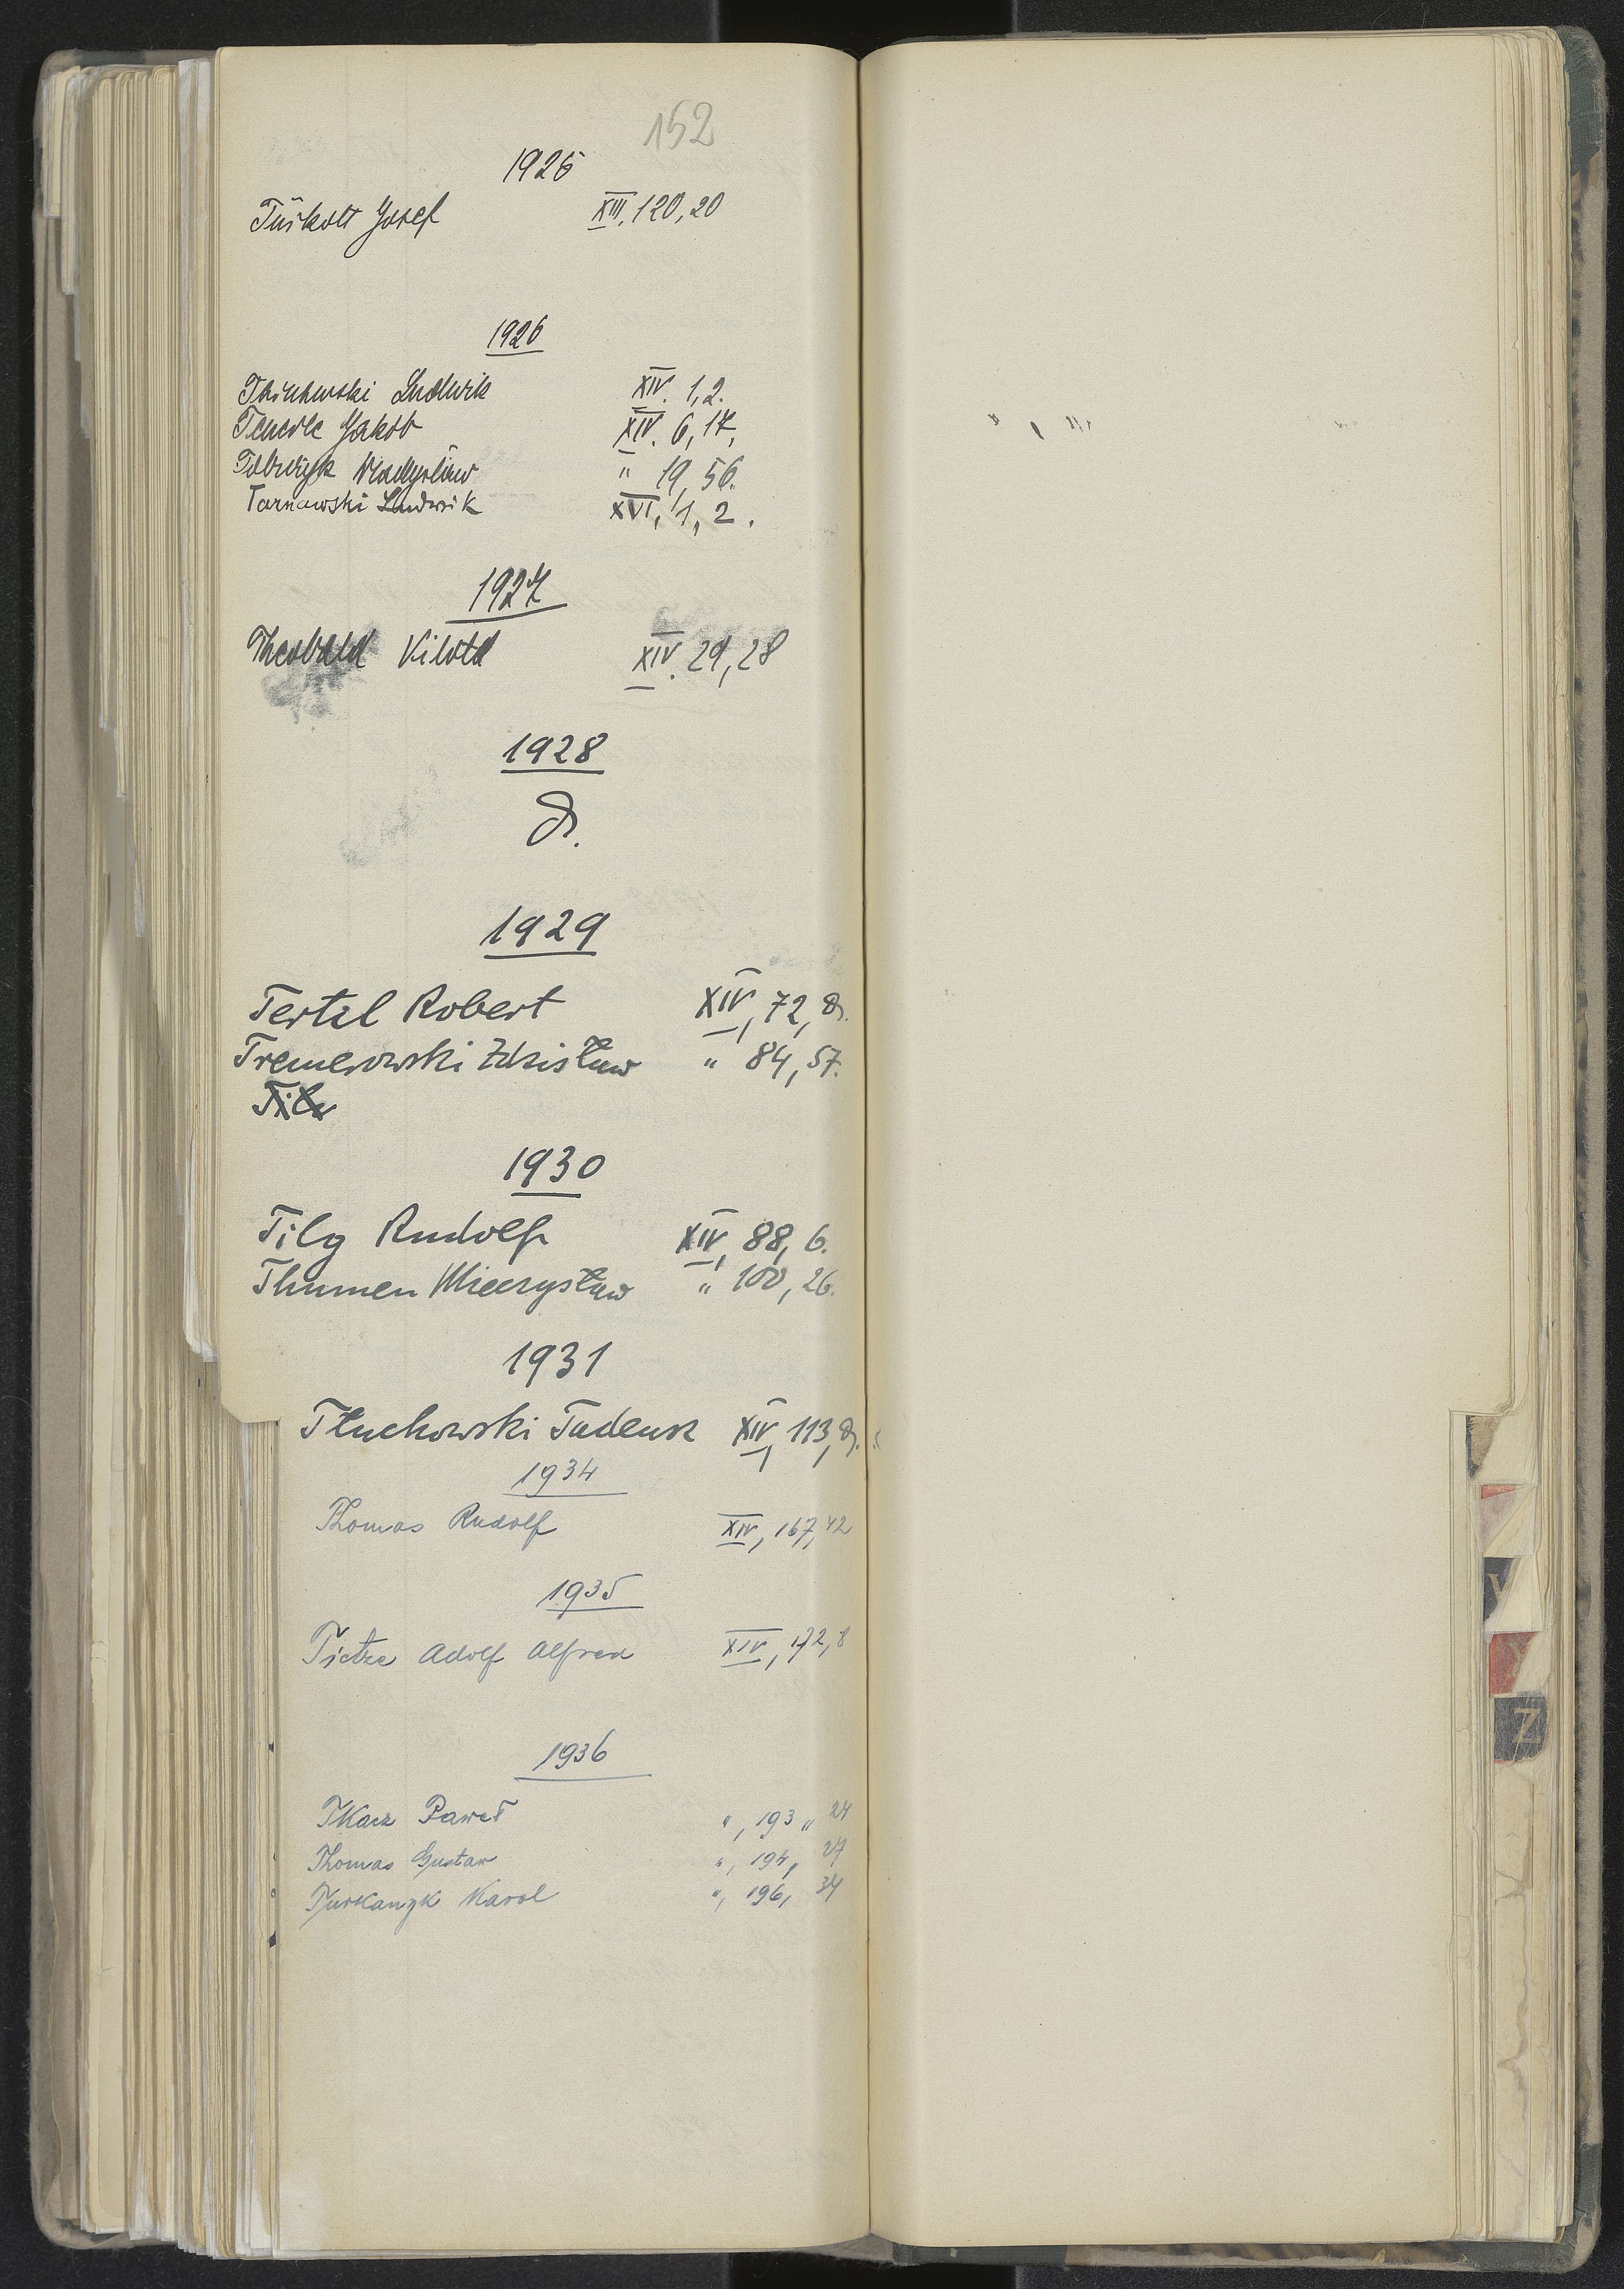 152
1925
Türkott Josef XIII, 120, 20
1926
Ludwik XIV. 1, 2.
Jakob XIV. 6, 17,
Władysław " 19, 56.
Tarnawski Ludwik XVI, 1, 2.
1927
Theobald Witold XIV. 29, 28
1928
1929
Tertel Robert XIV, 72,
Zdzisław " 84, 57.
1930
Tilg Rudolf XIV, 88, 6.
Thumen Mieczysław " 100, 26.
1931
Tłuchowski Tadeusz XIV, 113,
1934
Thomas Rudolf XIV, 167, 42
1935
Tietze Adolf Alfred XIV, 172, 8
1936
Tkacz Paweł ", 193 " 24
Thomas Gustaw ", 194, 27
Karol ", 196, 34
Z